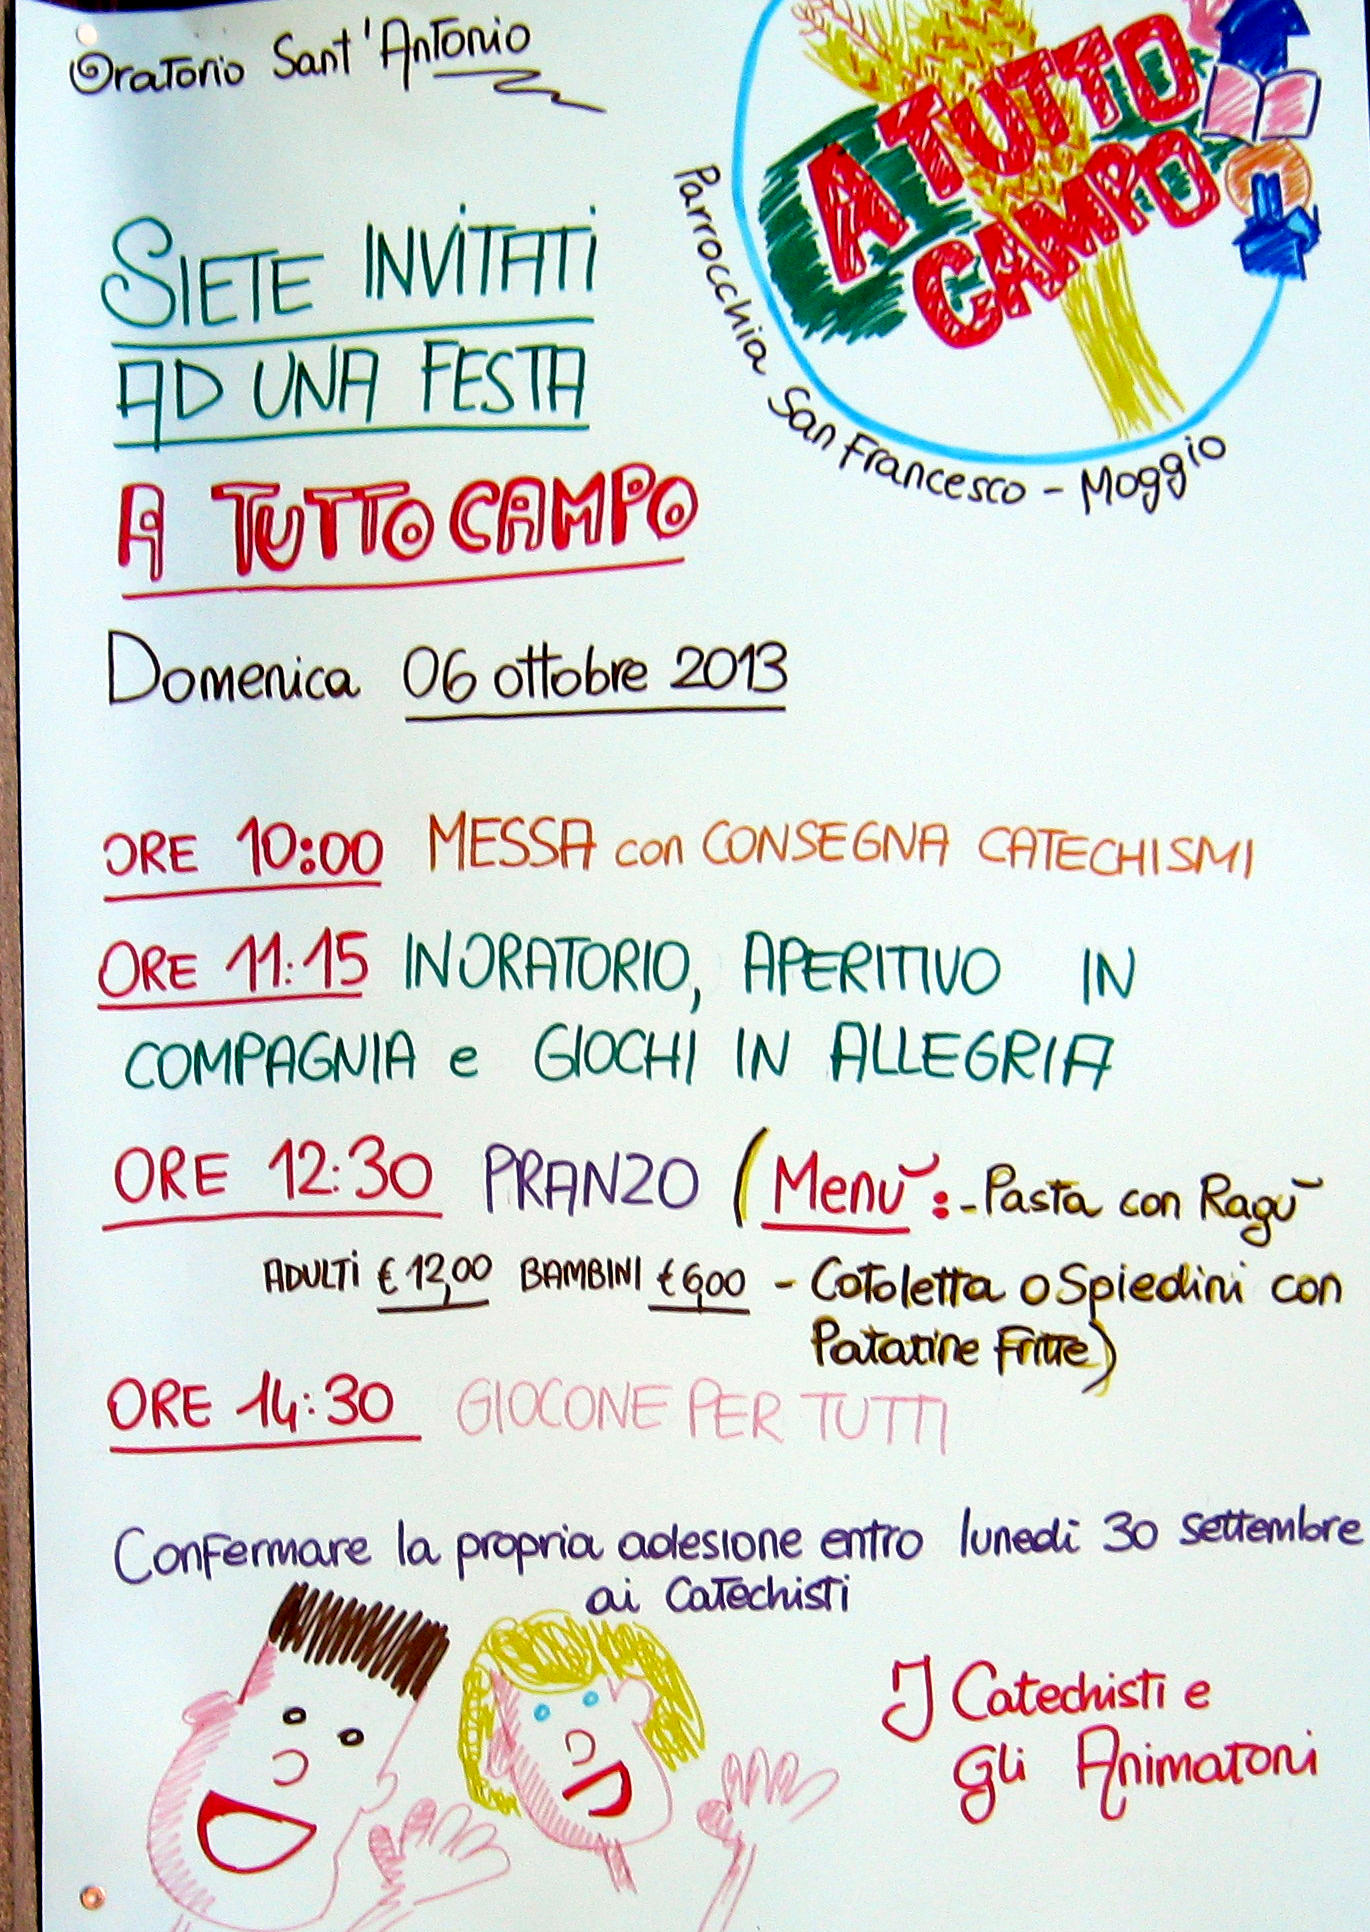 Oratorio Sant'Antonio
A TUTTO
CAMPO
Parrocchia San Francesco - Moggio
SIETE INVITATI
AD UNA FESTA
A TUTTO CAMPO
Domenica 06 ottobre 2013
ORE 10:00 MESSA con CONSEGNA CATECHISMI
ORE 11:15 IN ORATORIO, APERITIVO IN
COMPAGNIA e GIOCHI IN ALLEGRIA
ORE 12:30 PRANZO (Menù: - Pasta con Ragù
ADULTI € 12,00 BAMBINI € 6,00 - Cotoletta o Spiedini con
Patatine Fritte)
ORE 14:30 GIOCONE PER TUTTI
Confermare la propria adesione entro lunedì 30 settembre
ai Catechisti
I Catechisti e
gli Animatori